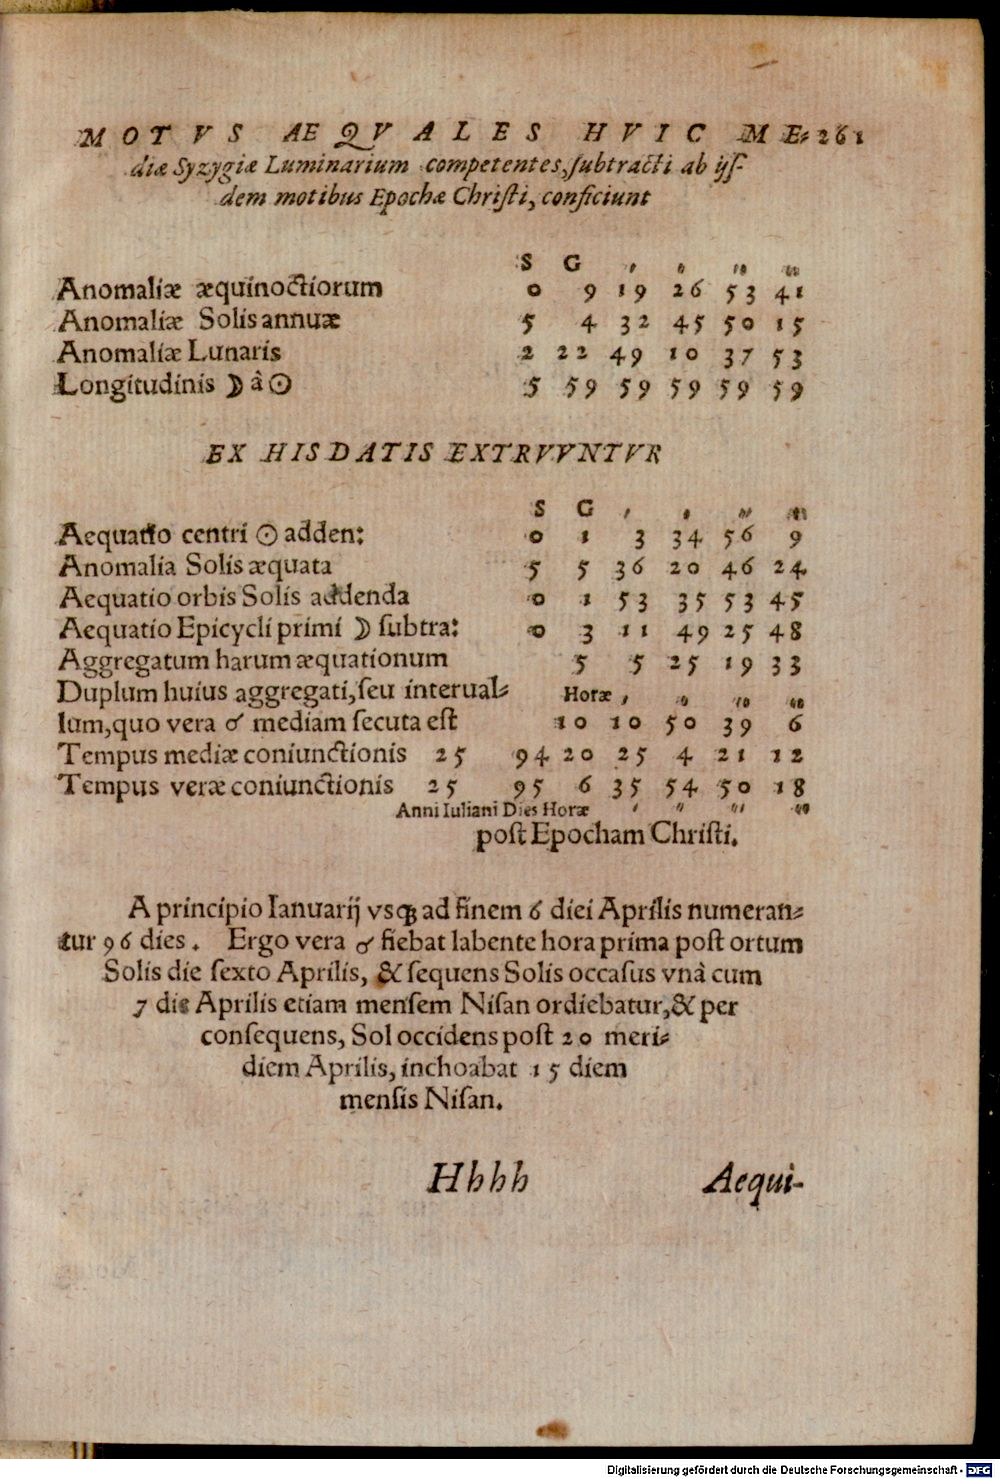 MOTVS AEQVALES HVIC ME⸗ 261
diæ Syzygiæ Luminarium competentes, ſubtracti ab ijſ-
dem motibus Epochæ Chriſti, conficiunt
S G ′ ″ ‴ ⁗
Anomaliæ æquinoctiorum 0 9 19 26 53 41
Anomaliæ Solis annuæ 5 4 32 45 50 15
Anomaliæ Lunaris 2 22 49 10 37 53
Longitudinis ☽ â ☉ 5 59 59 59 59 59
EX HIS DATIS EXTRVVNTVR
S G ′ ″ ‴ ⁗
Aequatio centri ☉ adden: 0 1 3 34 56 9
Anomalia Solis æquata 5 5 36 20 46 24
Aequatio orbis Solis addenda 0 1 53 35 53 45
Aequatio Epicycli primi ☽ ſubtra: 0 3 11 49 25 48
Aggregatum harum æquationum 5 5 25 19 33
Duplum huius aggregati, ſeu interual⸗ Horæ ′ ″ ‴ ⁗
lum, quo vera ☌ mediam ſecuta eſt 10 10 50 39 6
Tempus mediæ coniunctionis 25 94 20 25 4 21 12
Tempus veræ coniunctionis 25 95 6 35 54 50 18
Anni Iuliani Dies Horæ ′ ″ ‴ ⁗
poſt Epocham Chriſti.
A principio Ianuarij vsq; ad finem 6 diei Aprilis numeran⸗
tur 96 dies. Ergo vera ☌ fiebat labente hora prima poſt ortum
Solis die ſexto Aprilis, & ſequens Solis occaſus vnâ cum
7 die Aprilis etiam menſem Niſan ordiebatur, & per
conſequens, Sol occidens poſt 20 meri⸗
diem Aprilis, inchoabat 15 diem
menſis Niſan.
Hhhh Aequi-
Digitalisierung gefördert durch die Deutsche Forschungsgemeinschaft - DFG